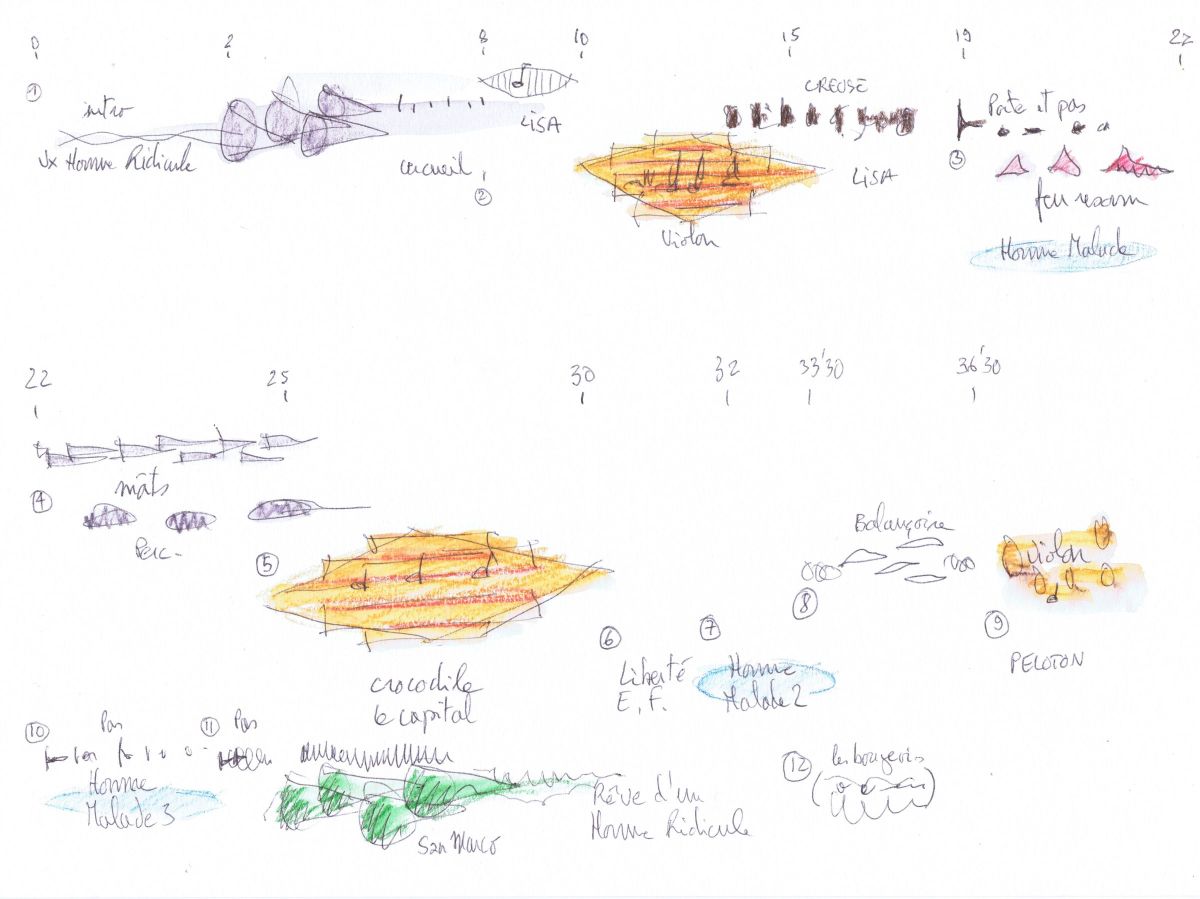 0 2 8 10 15 19 22
1
intro
Vx Homme Ridicule
cercueil
2
LISA
Violon
CREUSE
LISA
3
Porte et pas
feu
Homme Malade
22 25 30 32 33'30 36'30
4
mâts
Perc-
5
crocodile
le capital
6
Liberté
E. F.
7
Homme
Malade 2
8
Balançoire
9
Violon
PELOTON
10
Pas
Homme
Malade 3
11
Pas
San Marco
Rêve d'un
Homme Ridicule
12
les bougeries